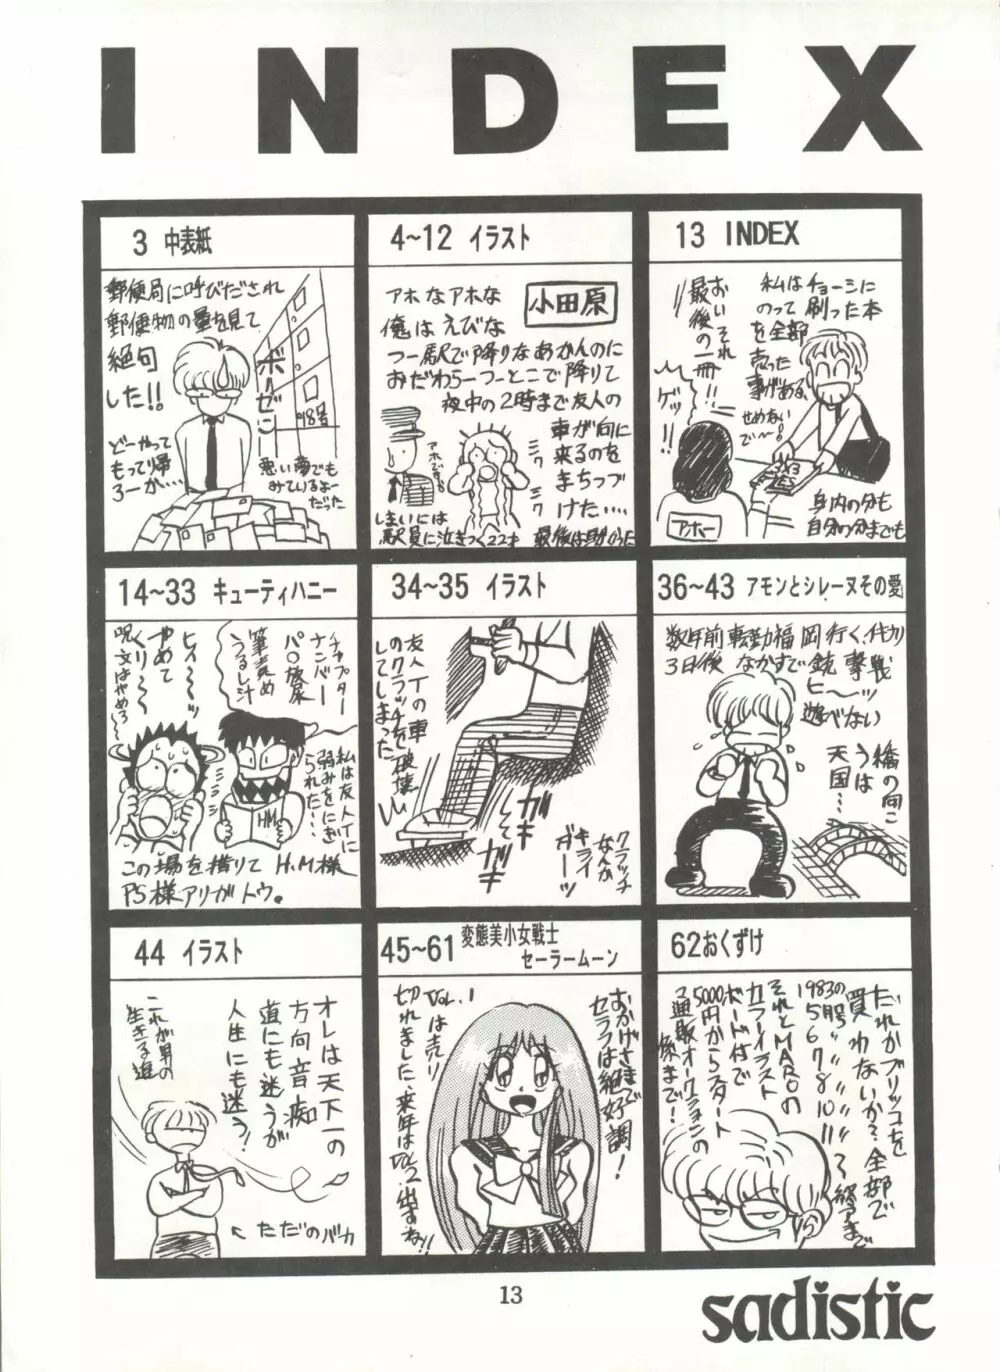 INDEX
3 中表紙
郵便局に呼びだされ
郵便物の量を見て
絶句
した!!
ボーゼン
98号
どーやって
もって帰
ろーか‥‥
悪い夢でも
みているよー
だった
4~12 イラスト
アホなアホな
小田原
俺はえびな
つー駅で降りなあかんのに
おだわらーつーとこで降りて
夜中の2時まで友人の
車が向に
来るのを
まちつづ
けた‥‥
アホです。
ミワ
ミワ
しまいには
駅員に泣きつく22才
13 INDEX
私はチョーシに
のって刷った本
を全部
売った
事がある、
せめないで~!
おいそれ
最後の一冊!!
ゲッ!!
アホー
身内の分も
自分の分までも
14~33 キューティハニー
チャプター
ナンバー
パ○放尿
筆責め
うるし汁
ヒィ~~ッ
やめて
くり~~
呪文はやめろ
私は友人Tに
弱みをにぎ
られた‥‥
HM
この場を借りて H.M様
PS様アリガトウ。
34~35 イラスト
友人Tの車
のクラッチを破壊
してしまった
ガキ
して
ガキ
クラッチ
なんか
キライ
ガーッ
36~43 アモンとシレーヌその愛
数年前転勤福岡行く、
3日後なかすで銃撃戦
ヒ~ッ
遊べない
橋の向こ
うは
天国‥
44 イラスト
オレは天下一の
方向音痴
道にも迷うが
人生にも迷う!
これが男の
生きる道
←ただのバカ
45~61 変態美小女戦士
セーラームーン
おかげさまで
セラフは絶好調!
Vol.1は売り
切れました、来年はVol.2出すね!!
62おくずけ
だれかブリッコを
買わないか?全部で
1983の
5月号
5 6 7 8 10 11
それとMAROの
カライラスト
ボード付で
5000円からスタート
通販オークションの
様まで!
13
sadistic